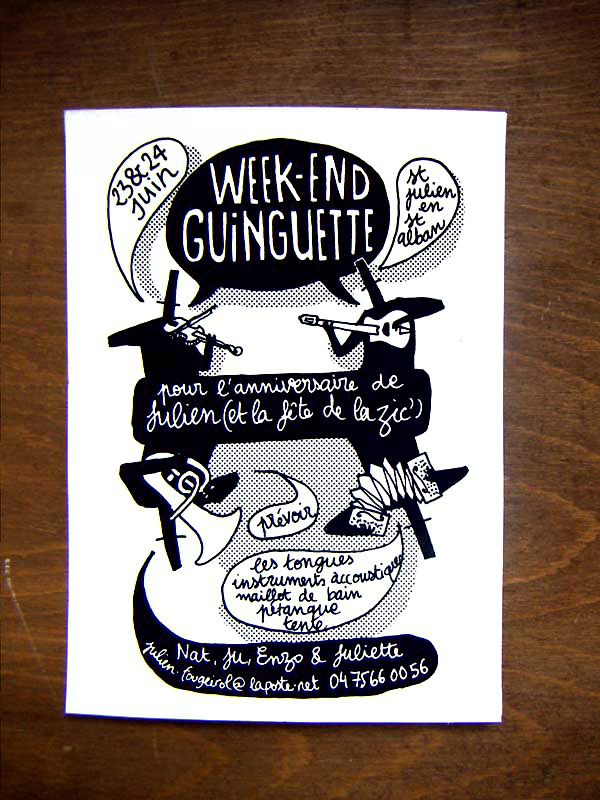 23 & 24
juin
WEEK-END
GUiNGUETTE
st
julien
en
st
alban
pour l'anniversaire de
Julien (et la fête de la zic')
prévoir
les tongues
instruments accoustiques
maillot de bain
pétanque
tente
Nat, Ju, Enzo & Juliette
julien.fougeirol@laposte.net 04 75 66 00 56